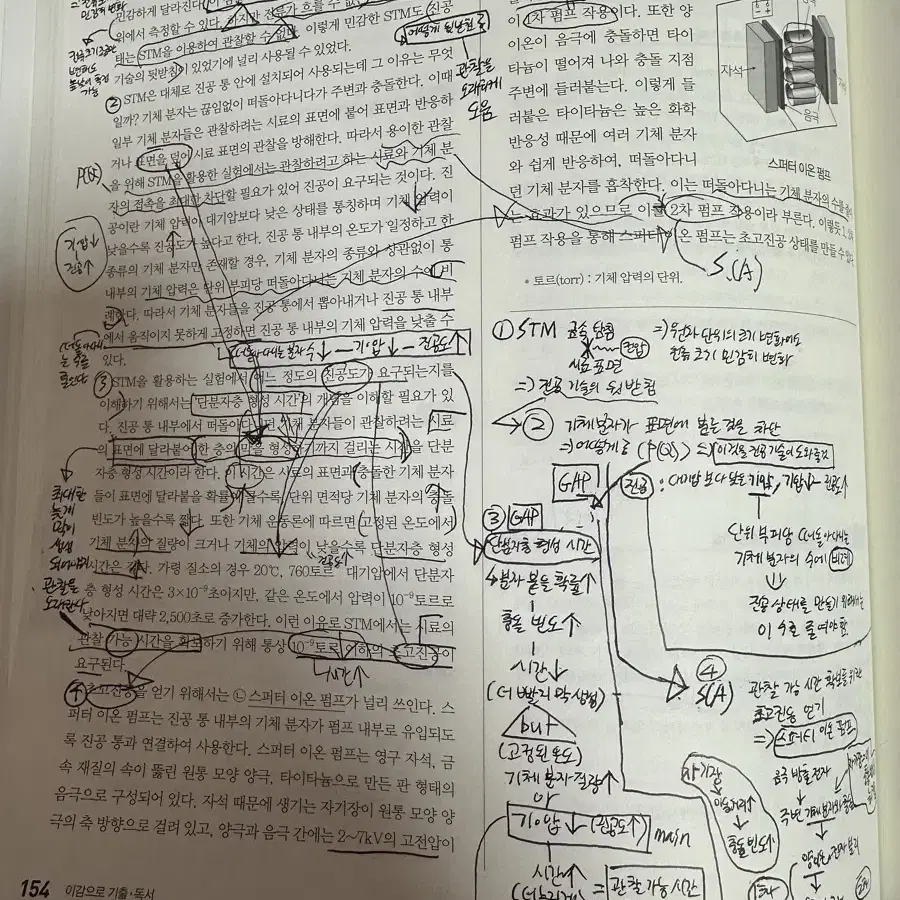 민감하게 달라진다
위에서 측정할 수 있다. 하지만 전류가 흐를 수 없
태는 STM을 이용하여 관찰할 수 없다. 이렇게 민감한 STM도 진공
기술의 뒷받침이 있었기에 널리 사용될 수 있었다.
② STM은 대체로 진공 통 안에 설치되어 사용되는데 그 이유는 무엇
일까? 기체 분자는 끊임없이 떠돌아다니다가 주변과 충돌한다. 이때
일부 기체 분자들은 관찰하려는 시료의 표면에 붙어 표면과 반응하
거나 표면을 덮어 시료 표면의 관찰을 방해한다. 따라서 용이한 관찰
을 위해 STM을 활용한 실험에서는 관찰하려고 하는 시료와 기체 분
자의 접촉을 최대한 차단할 필요가 있어 진공이 요구되는 것이다. 진
공이란 기체 압력이 대기압보다 낮은 상태를 통칭하며 기체 압력이
낮을수록 진공도가 높다고 한다. 진공 통 내부의 온도가 일정하고 한
종류의 기체 분자만 존재할 경우, 기체 분자의 종류와 상관없이 통
내부의 기체 압력은 단위 부피당 떠돌아다니는 기체 분자의 수에 비
례한다. 따라서 기체 분자들을 진공 통에서 뽑아내거나 진공 통 내부
에서 움직이지 못하게 고정하면 진공 통 내부의 기체 압력을 낮출 수
있다.
떠돌아다니는 분자 수↓ — 기·압↓ — 진공도↑
③ STM을 활용하는 실험에서 어느 정도의 진공도가 요구되는지를
이해하기 위해서는 '단분자층 형성 시간'의 개념을 이해할 필요가 있
다. 진공 통 내부에서 떠돌아다니던 기체 분자들이 관찰하려는 시료
의 표면에 달라붙어 한 층의 막을 형성하기까지 걸리는 시간을 단분
자층 형성 시간이라 한다. 이 시간은 시료의 표면과 충돌한 기체 분자
들이 표면에 달라붙을 확률이 클수록, 단위 면적당 기체 분자의 충돌
빈도가 높을수록 짧다. 또한 기체 운동론에 따르면 고정된 온도에서
기체 분자의 질량이 크거나 기체의 압력이 낮을수록 단분자층 형성
시간은 길다. 가령 질소의 경우 20℃, 760토르* 대기압에서 단분자
층 형성 시간은 3×10⁻⁹초이지만, 같은 온도에서 압력이 10⁻⁹토르로
낮아지면 대략 2,500초로 증가한다. 이런 이유로 STM에서는 시료의
관찰 가능 시간을 확보하기 위해 통상 10⁻⁹토르 이하의 초고진공이
요구된다.
시간↑
④ 초고진공을 얻기 위해서는 ㉡ 스퍼터 이온 펌프가 널리 쓰인다. 스
퍼터 이온 펌프는 진공 통 내부의 기체 분자가 펌프 내부로 유입되도
록 진공 통과 연결하여 사용한다. 스퍼터 이온 펌프는 영구 자석, 금
속 재질의 속이 뚫린 원통 모양 양극, 타이타늄으로 만든 판 형태의
음극으로 구성되어 있다. 자석 때문에 생기는 자기장이 원통 모양 양
극의 축 방향으로 걸려 있고, 양극과 음극 간에는 2~7kV의 고전압이
154 이감으로 기출·독서
P(Q)
기압↓
진공↑
최대한
늦게
막이
생성
되어야
관찰을
오래한다
관찰을
오래하게
도움
1차 펌프 작용이다. 또한 양
이온이 음극에 충돌하면 타이
타늄이 떨어져 나와 충돌 지점
주변에 들러붙는다. 이렇게 들
러붙은 타이타늄은 높은 화학
반응성 때문에 여러 기체 분자
와 쉽게 반응하여, 떠돌아다니
던 기체 분자를 흡착한다. 이는 떠돌아다니는 기체 분자의 수를 줄이
는 효과가 있으므로 이를 2차 펌프 작용이라 부른다. 이렇듯 1, 2차
펌프 작용을 통해 스퍼터 이온 펌프는 초고진공 상태를 만들 수 있
자석
음극
스퍼터 이온 펌프
S(A)
* 토르(torr) : 기체 압력의 단위.
① STM 금속 탐침
전압
시료 표면
⇒ 원자 단위의 크기 변화에도
전류 크기 민감히 변화
⇒ 진공 기술의 뒷받침
② 기체분자가 표면에 붙는 것을 차단
⇒ 어떻게? (P(Q)) ⇒ 이것을 진공기술이 도와줄것
진공 : 대기압 보다 낮은 기압, 기압↓ — 진공도↑
단위 부피당 떠돌아다니는
기체분자의 수에 비례
진공 상태를 만들기 위해서는
이 수를 줄여야 함
GAP
③ GAP
단분자층 형성 시간
분자 붙을 확률↑
충돌 빈도↑
시간↓
(더 빨리 막 생성)
but
(고정된 온도)
기체 분자 질량↑
or
기·압↓ (진공도↑) main
시간↑
= 관찰 가능 시간
④
S(A)
관찰 가능 시간 확보를 위한
초고진공 얻기
⇒ 스퍼터 이온 펌프
자기장
이동거리↑
충돌 빈도↑
음극 방출 전자
주변 기체분자와 충돌